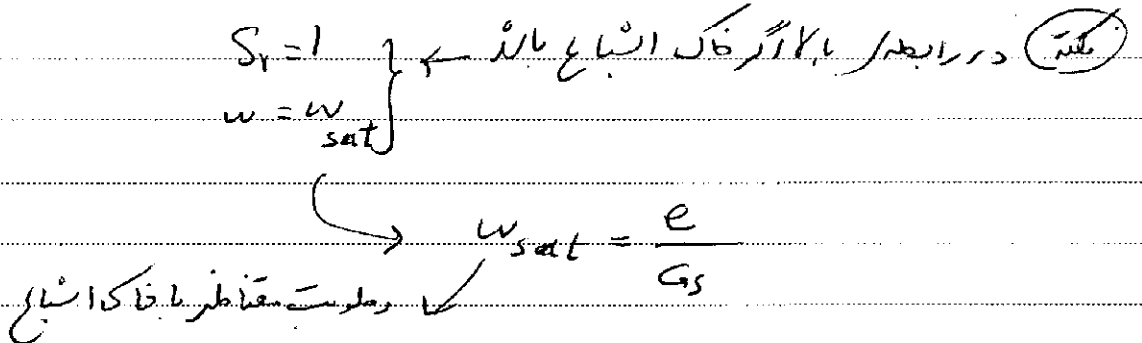 نکته در رابطه‌ی بالا اگر خاک اشباع باشد ← } Sr = 1
w = w sat
→ w sat = e / Gs
رطوبت متناظر با خاک اشباع